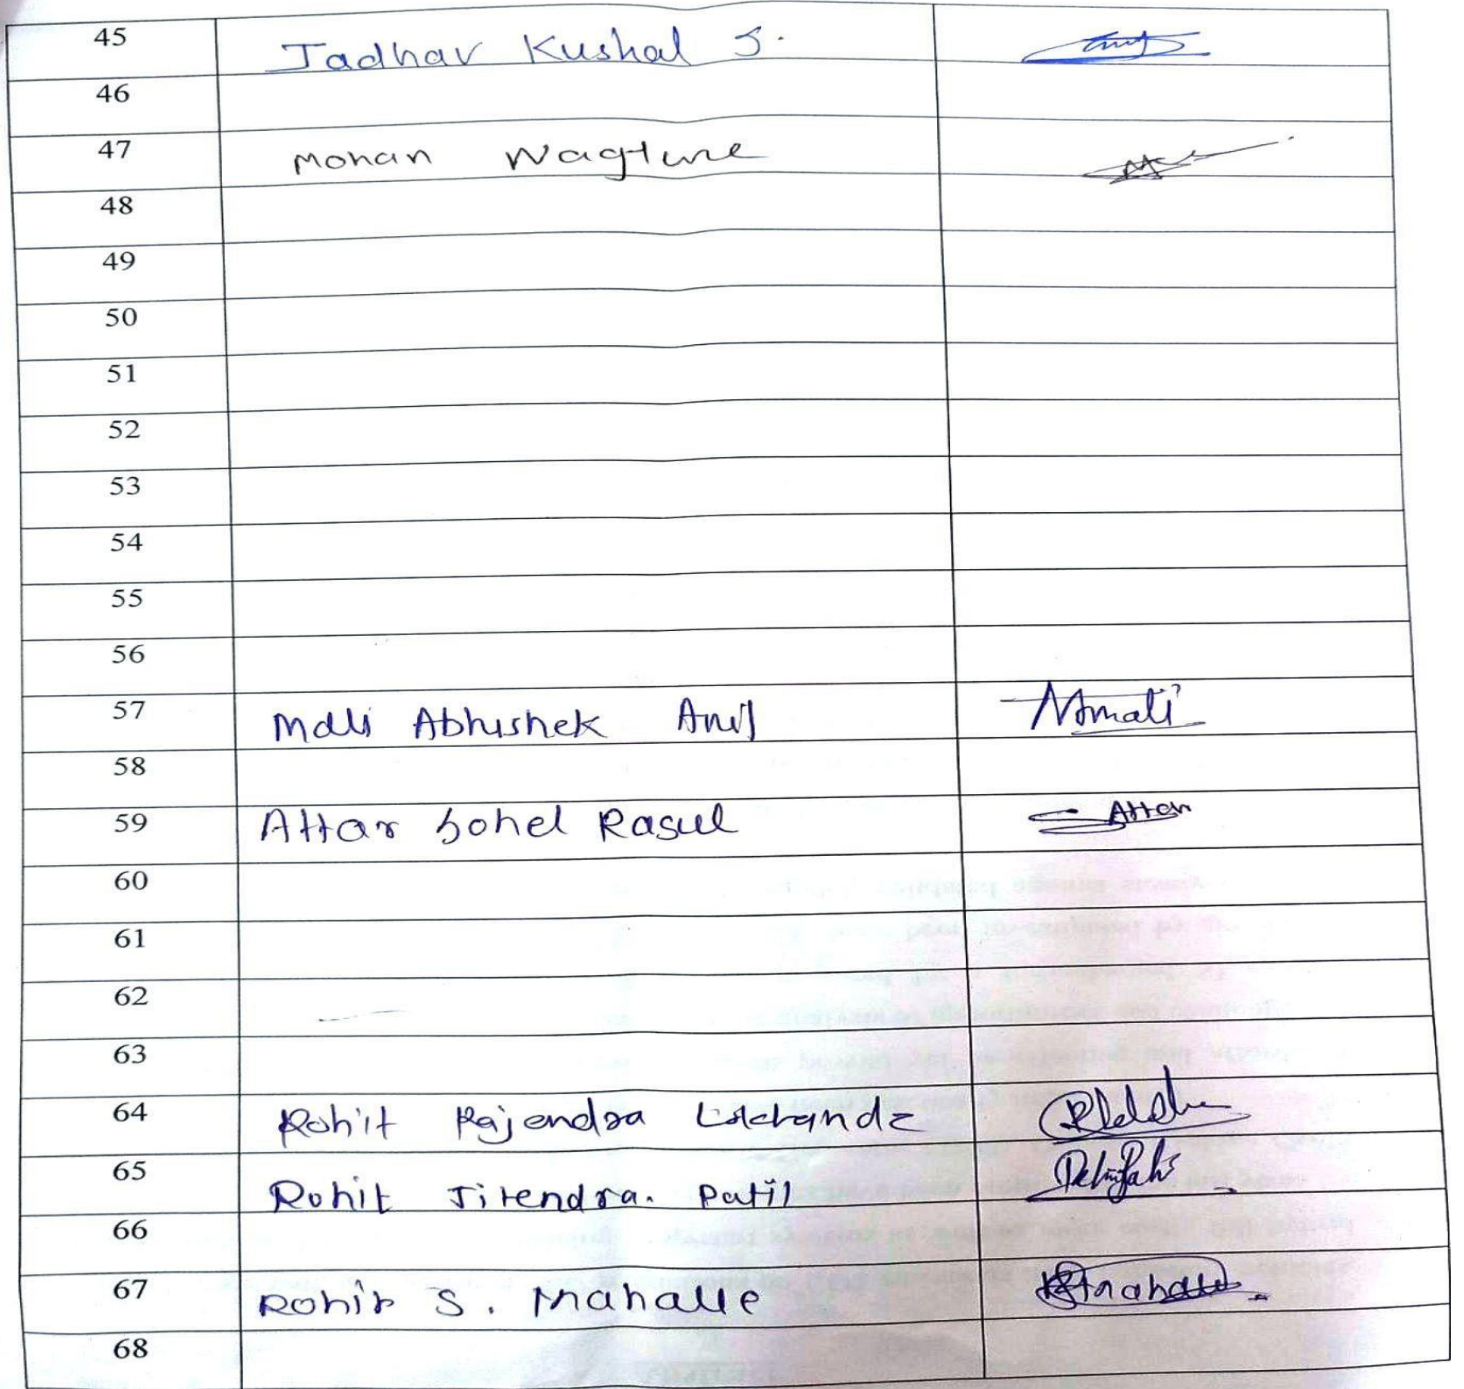 45 Jadhav Kushal S.
46
47 Mohan Wagture
48
49
50
51
52
53
54
55
56
57 Mali Abhishek Anil Amali
58
59 Attar Sohel Rasul Attar
60
61
62
63
64 Rohit Rajendra
65 Rohit Jitendra. Patil
66
67 Rohit S. Mahalle
68